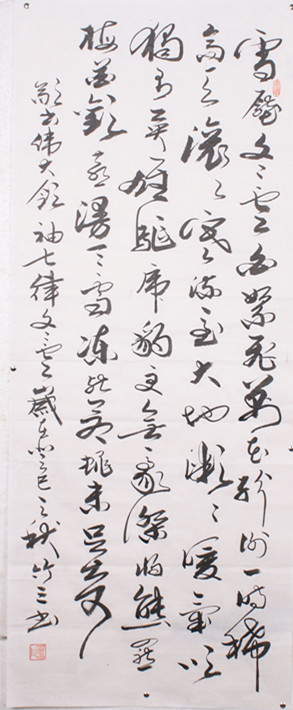 雪壓冬云白絮飛萬花紛謝一時稀
高天滾々寒流急大地微々暖氣吹
獨有英雄驅虎豹更無豪傑怕熊羆
梅花歡喜漫天雪凍死蒼蠅未足奇
敬书偉大領袖七律冬云歲在巳之秋竹三书